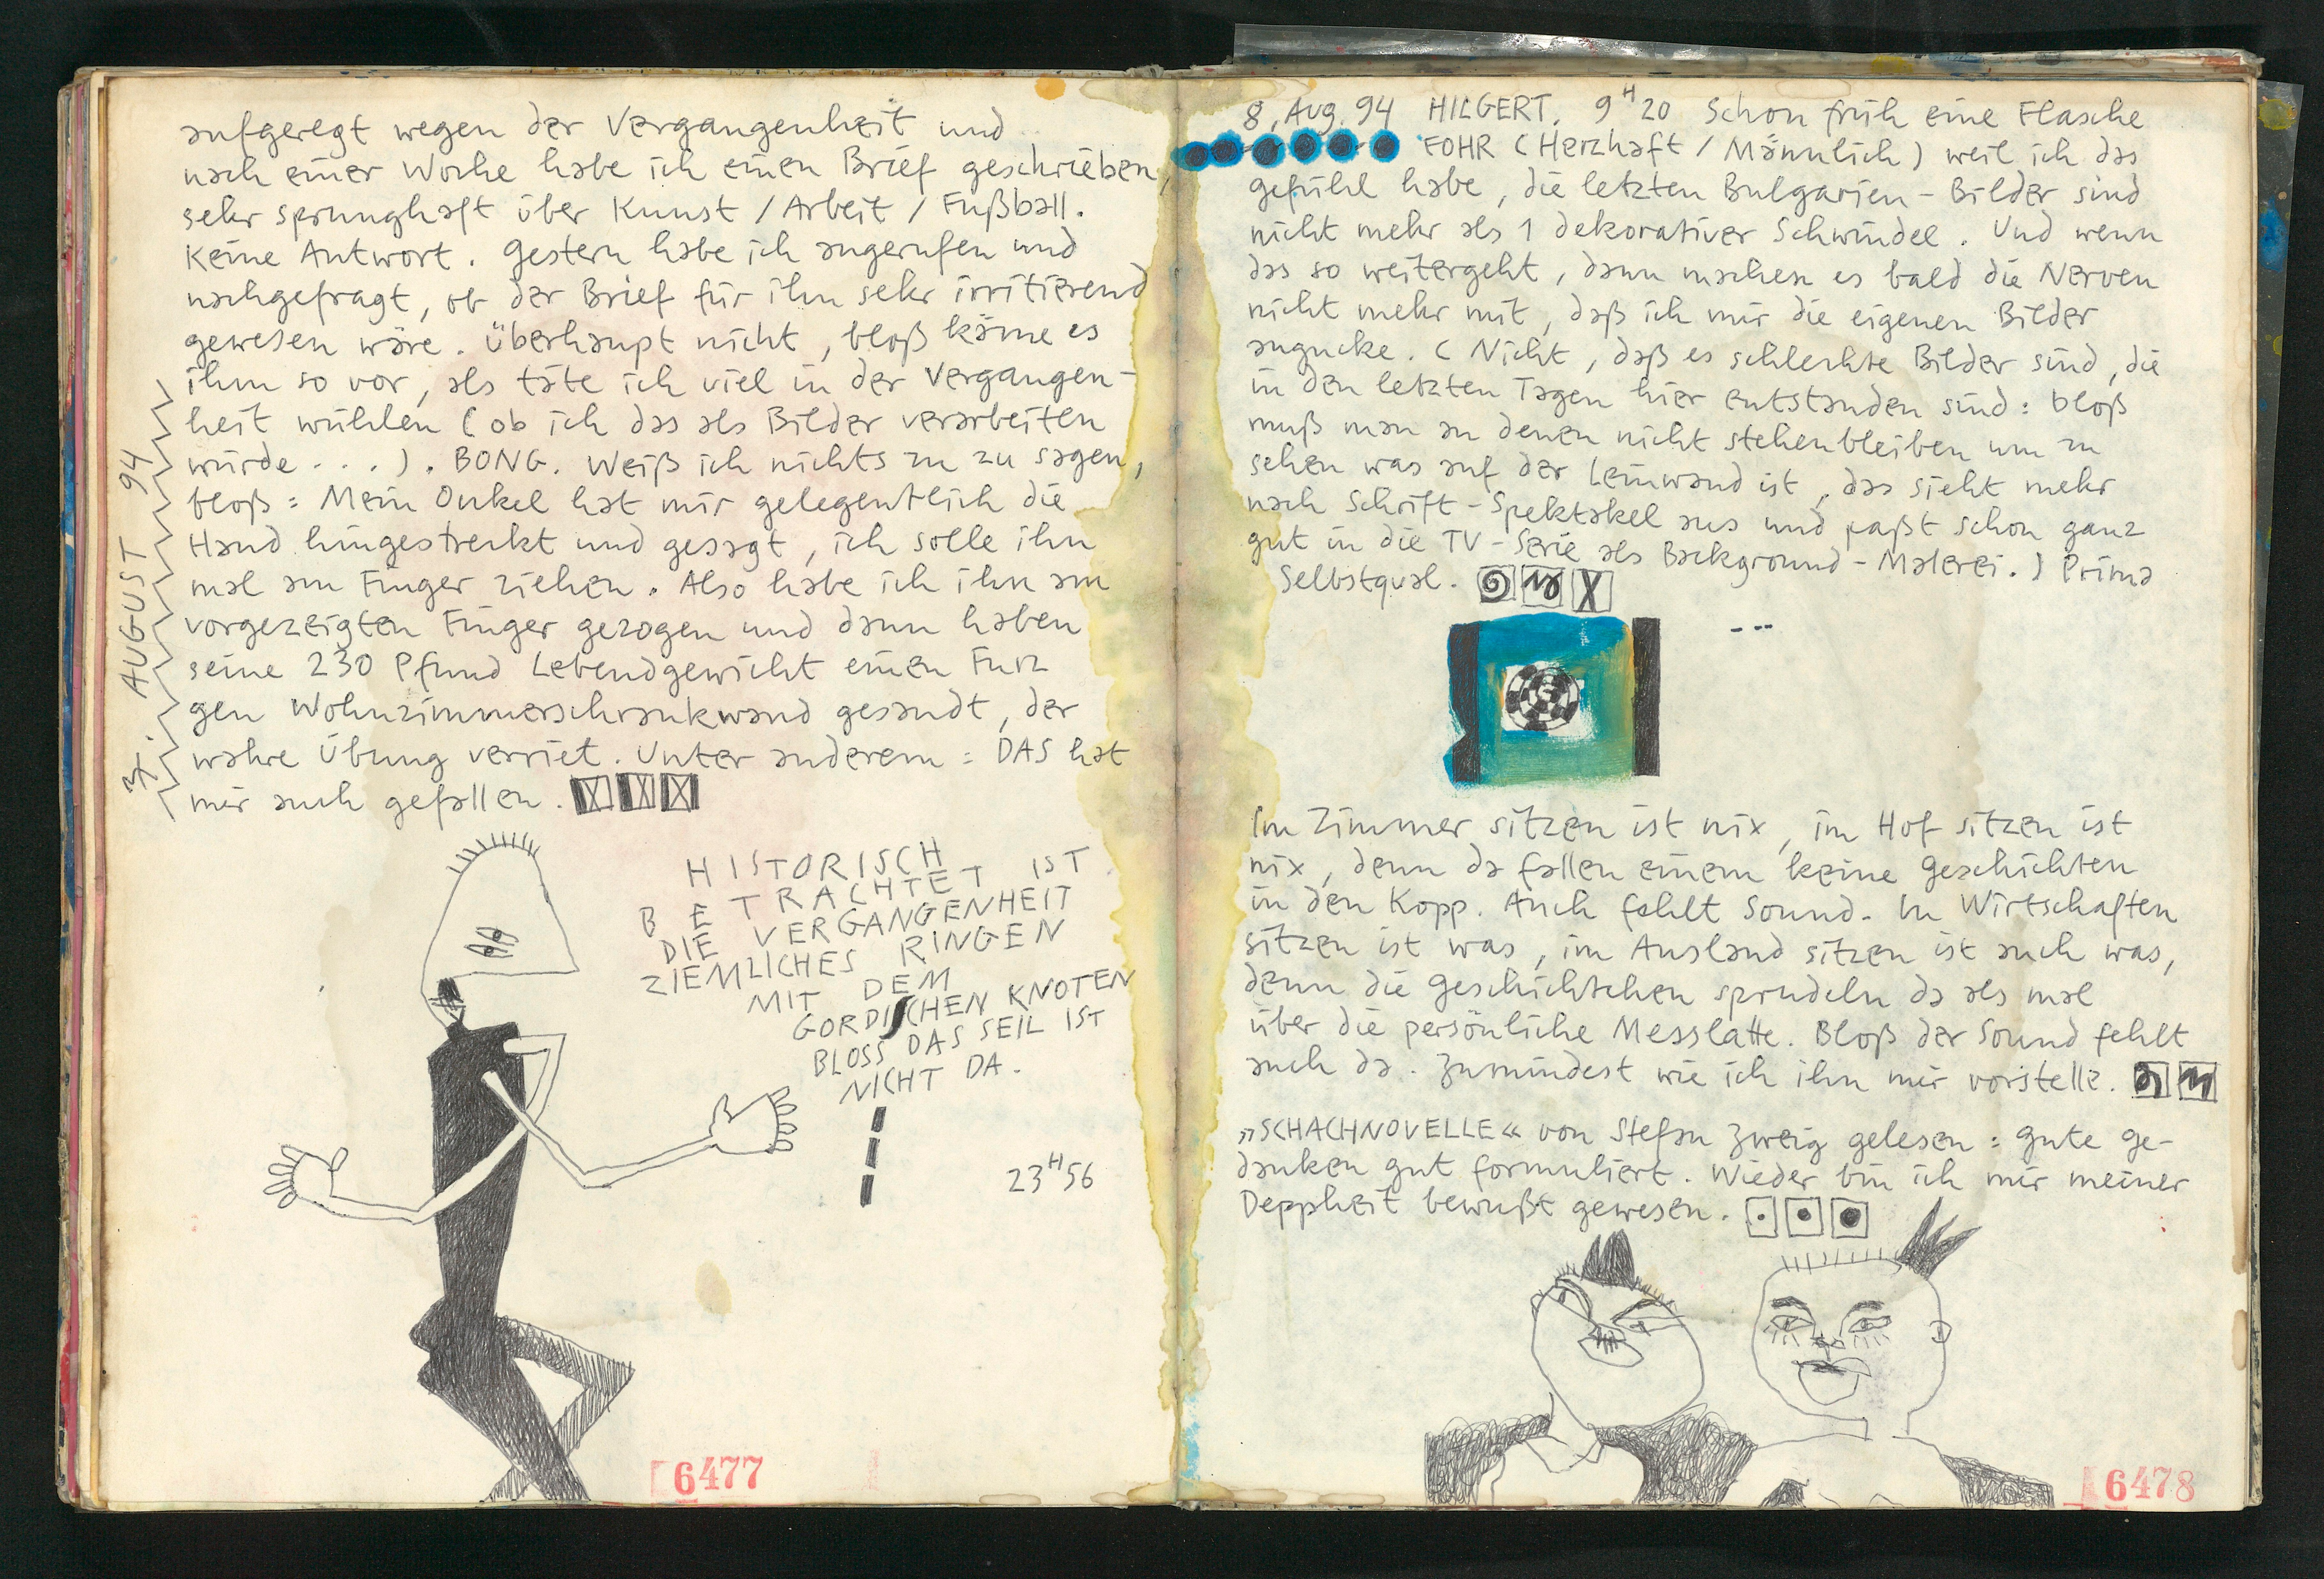 aufgeregt wegen der Vergangenheit und
nach einer Woche habe ich einen Brief geschrieben,
sehr sprunghaft über Kunst / Arbeit / Fußball.
Keine Antwort. Gestern habe ich angerufen und
nachgefragt, ob der Brief für ihn sehr irritierend
gewesen wäre. Überhaupt nicht, bloß käme es
ihm so vor, als täte ich viel in der Vergangen-
heit wühlen (ob ich das als Bilder verarbeiten
würde . . . ). BONG. Weiß ich nichts zu zu sagen,
bloß: Mein Onkel hat mir gelegentlich die
Hand hingestreckt und gesagt, ich solle ihn
mal am Finger ziehen. Also habe ich ihn am
vorgezeigten Finger gezogen und dann haben
seine 230 Pfund Lebendgewicht einen Furz
gen Wohnzimmerschrankwand gesandt, der
wahre Übung verriet. Unter anderem: DAS hat
mir auch gefallen.
AUGUST 94
HISTORISCH
BETRACHTET IST
DIE VERGANGENHEIT
ZIEMLICHES RINGEN
MIT DEM
GORDISCHEN KNOTEN
BLOSS DAS SEIL IST
NICHT DA.
23H56
6477
8. Aug. 94 HILGERT. 9H20 Schon früh eine Flasche
FOHR (Herzhaft / Männlich) weil ich das
Gefühl habe, die letzten Bulgarien-Bilder sind
nicht mehr als 1 dekorativer Schwindel. Und wenn
das so weitergeht, dann machen es bald die Nerven
nicht mehr mit, daß ich mir die eigenen Bilder
angucke. (Nicht, daß es schlechte Bilder sind, die
in den letzten Tagen hier entstanden sind: bloß
muß man an denen nicht stehenbleiben um zu
sehen was auf der Leinwand ist, das sieht mehr
nach Schrift-Spektakel aus und paßt schon ganz
gut in die TV-Serie als Background-Malerei.) Prima
Selbstqual.
Im Zimmer sitzen ist nix, im Hof sitzen ist
nix, denn da fallen einem keine Geschichten
in den Kopp. Auch fehlt Sound. In Wirtschaften
sitzen ist was, im Ausland sitzen ist auch was,
denn die Geschichtchen sprudeln da als mal
über die persönliche Messlatte. Bloß der Sound fehlt
auch da. Zumindest wie ich ihn mir vorstelle.
»SCHACHNOVELLE« von Stefan Zweig gelesen: gute Ge-
danken gut formuliert. Wieder bin ich mir meiner
Deppheit bewußt gewesen.
6478